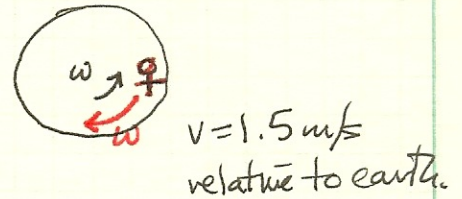 ω
ω
v = 1.5 m/s
relative to earth.